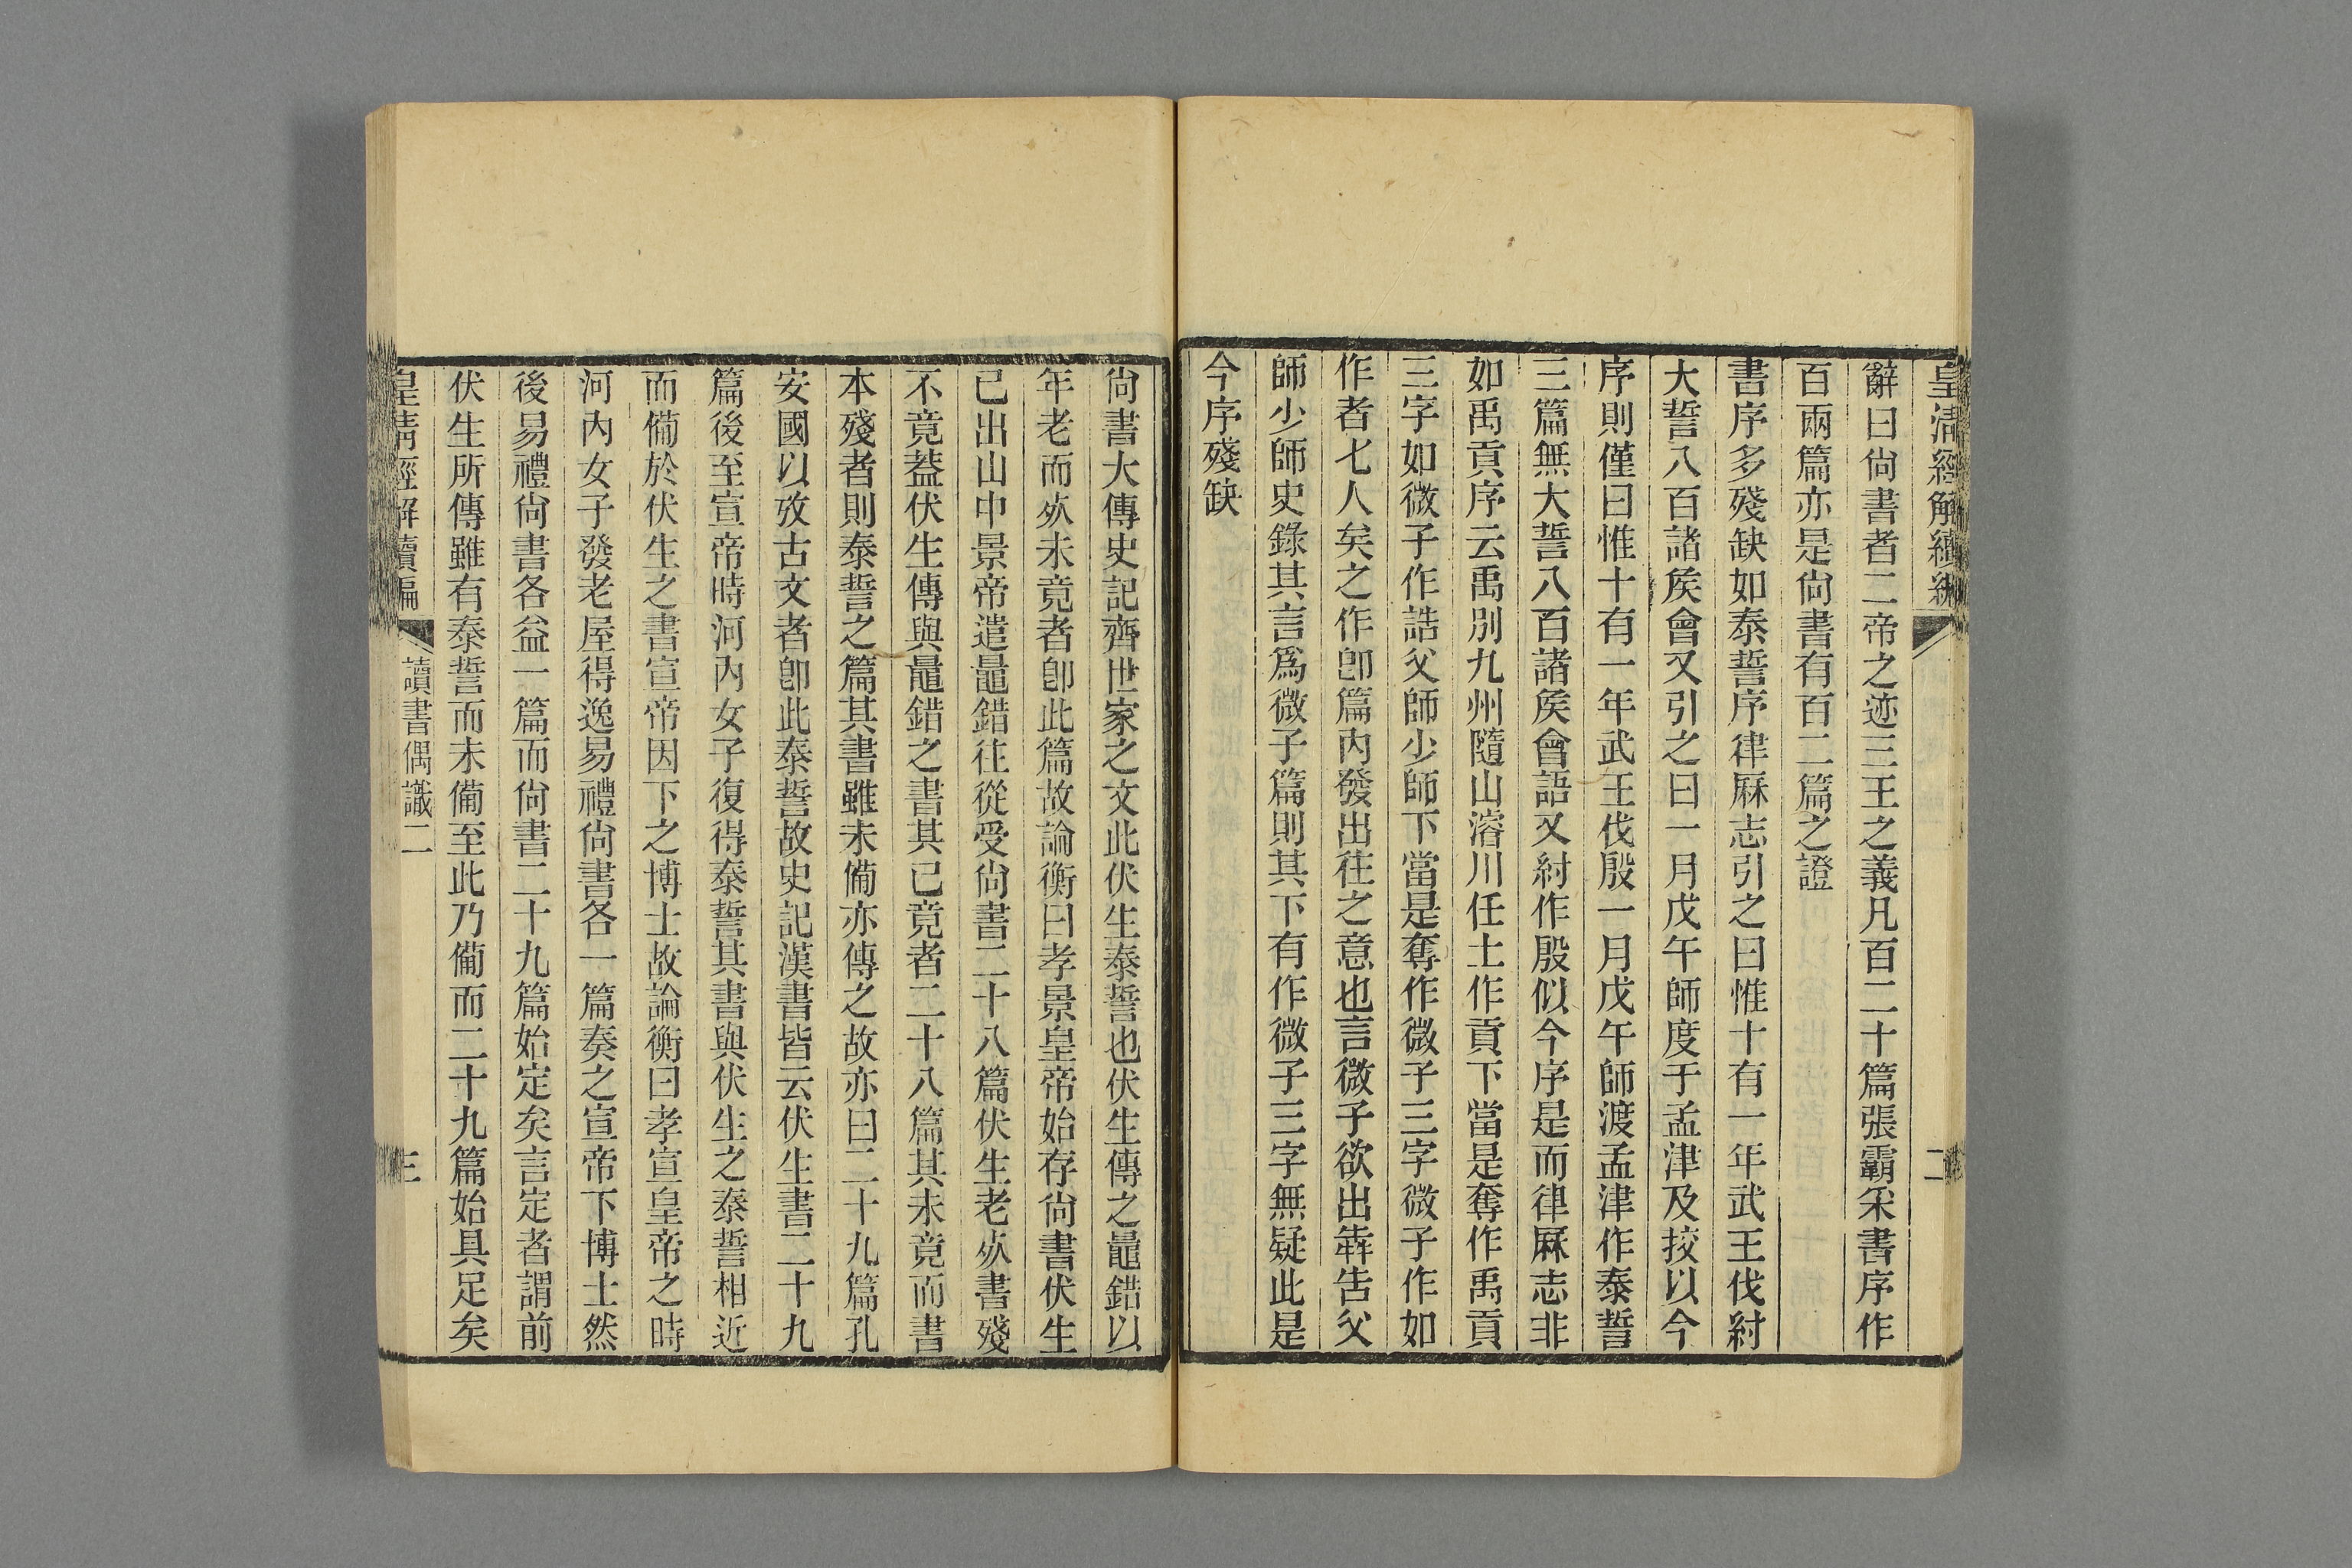 皇清經解續編
二
辭曰尙書者二帝之迹三王之義凡百二十篇張霸采書序作
百兩篇亦是尙書有百二篇之證
書序多殘缺如泰誓序律厤志引之曰惟十有一年武王伐紂
大誓八百諸矦會又引之曰一月戊午師度于孟津及挍以今
序則僅曰惟十有一年武王伐殷一月戊午師渡孟津作泰誓
三篇無大誓八百諸矦會語又紂作殷似今序是而律厤志非
如禹貢序云禹別九州隨山濬川任土作貢下當是奪作禹貢
三字如微子作誥父師少師下當是奪作微子三字微子作如
作者七人矣之作卽篇內發出往之意也言微子欲出犇告父
師少師史錄其言爲微子篇則其下有作微子三字無疑此是
今序殘缺
尙書大傳史記齊世家之文此伏生泰誓也伏生傳之鼂錯以
年老而㱙未竟者卽此篇故論衡曰孝景皇帝始存尙書伏生
已出山中景帝遣鼂錯往從受尙書二十八篇伏生老㱙書殘
不竟葢伏生傳與鼂錯之書其已竟者二十八篇其未竟而書
本殘者則泰誓之篇其書雖未僃亦傳之故亦曰二十九篇孔
安國以攷古文者卽此泰誓故史記漢書皆云伏生書二十九
篇後至宣帝時河內女子復得泰誓其書與伏生之泰誓相近
而僃於伏生之書宣帝因下之博士故論衡曰孝宣皇帝之時
河內女子發老屋得逸易禮尙書各一篇奏之宣帝下博士然
後易禮尙書各益一篇而尙書二十九篇始定矣言定者謂前
伏生所傳雖有泰誓而未僃至此乃僃而二十九篇始具足矣
皇清經解續編
讀書偶識二
三